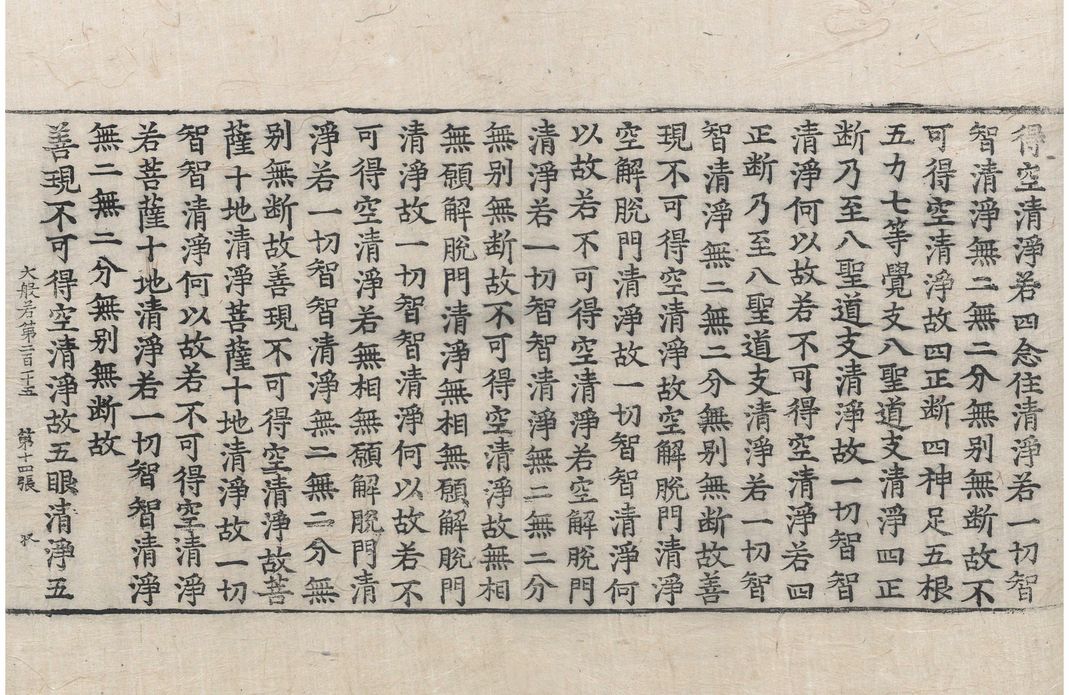 得空清淨若四念住清淨若一切智
智清淨無二無二分無别無断故不
可得空清淨故四正断四神足五根
五力七等覺支八聖道支清淨四正
断乃至八聖道支清淨故一切智智
清淨何以故若不可得空清淨若四
正断乃至八聖道支清淨若一切智
智清淨無二無二分無别無断故善
現不可得空清淨故空解脫門清淨
空解脫門清淨故一切智智清淨何
以故若不可得空清淨若空解脫門
清淨若一切智智清淨無二無二分
無别無断故不可得空清淨故無相
無願解脫門清淨無相無願解脫門
清淨故一切智智清淨何以故若不
可得空清淨若無相無願解脫門清
淨若一切智智清淨無二無二分無
别無断故善現不可得空清淨故菩
薩十地清淨菩薩十地清淨故一切
智智清淨何以故若不可得空清淨
若菩薩十地清淨若一切智智清淨
無二無二分無别無断故
大般若第二百一十五 第十四張
善現不可得空清淨故五眼清淨五